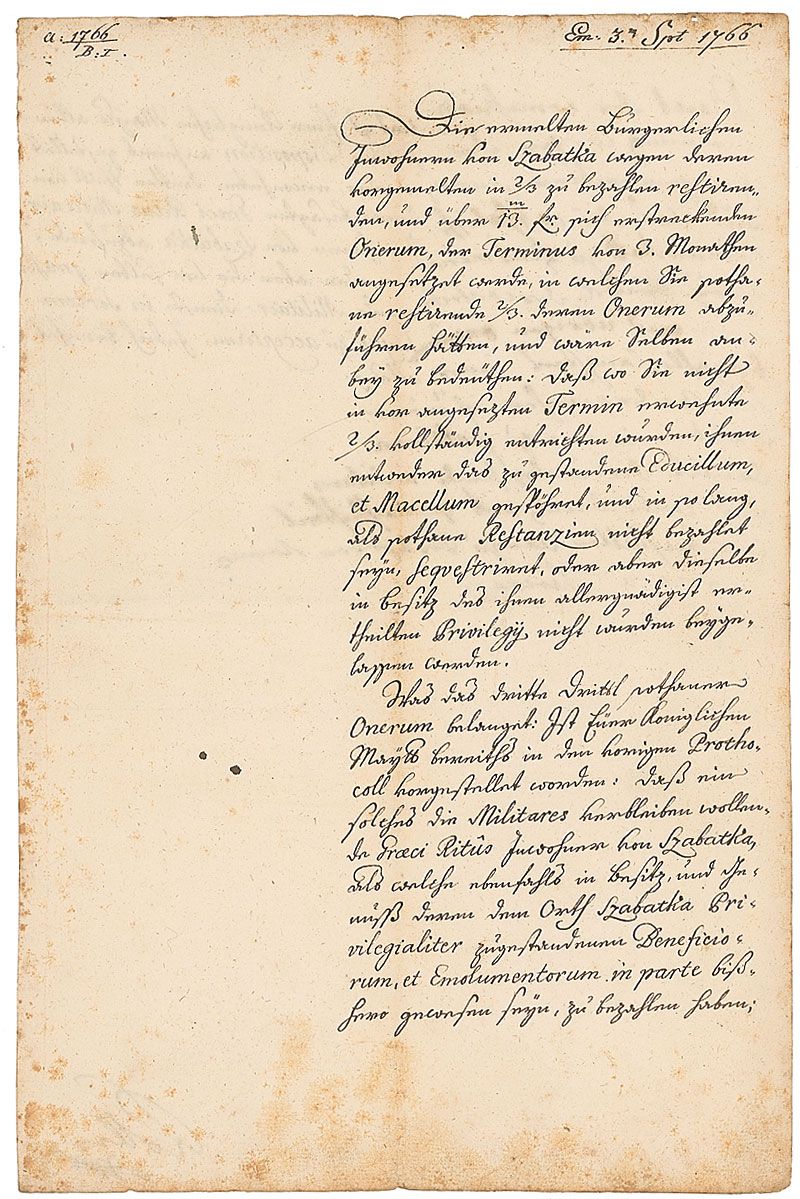 a: 1766
B: I.
Em. 3.ª Spt 1766
Die ermelten Bürgerlichen
Inwohnern von Szabatka wegen deren
vorgemelten in 2/3 zu bezahlen restiren-
den, und über 13.m fr. sich erstreckenden
Onerum, der Terminus von 3. Monathen
angesetzet werde, in welchen Sie sotha-
ne restirende 2/3. deren Onerum abzu-
führen hätten, und wäre Selben an-
bey zu bedeüthen: daß wo Sie nicht
in vor angesezten Termin erwehnte
2/3. vollständig entrichten wurden, ihnen
entweder das zugestandene Educillum,
et Macellum gespöhret, und in so lang,
als sothane Restanzien nicht bezahlet
seyn, sequestriret, oder aber dieselbe
in besitz des ihnen allergnädigist er-
theilten Privilegij nicht wurden beyge-
lassen werden.
Was das dritte Drittl sothaner
Onerum belanget: Ist Eüer Königlichen
Mayts bereiths in den vorigen Protho-
coll vorgestellet worden: daß ein
solches die Militares verbleiben wollen-
de Græci Ritûs Inwohner von Szabatka,
als welche ebenfahls in Besitz, und Ge-
nuß deren dem Orth Szabatka Pri-
vilegialiter zugestandenen Beneficio-
rum, et Emolumentorum in parte biß-
hero gewesen seyn, zu bezahlen haben;